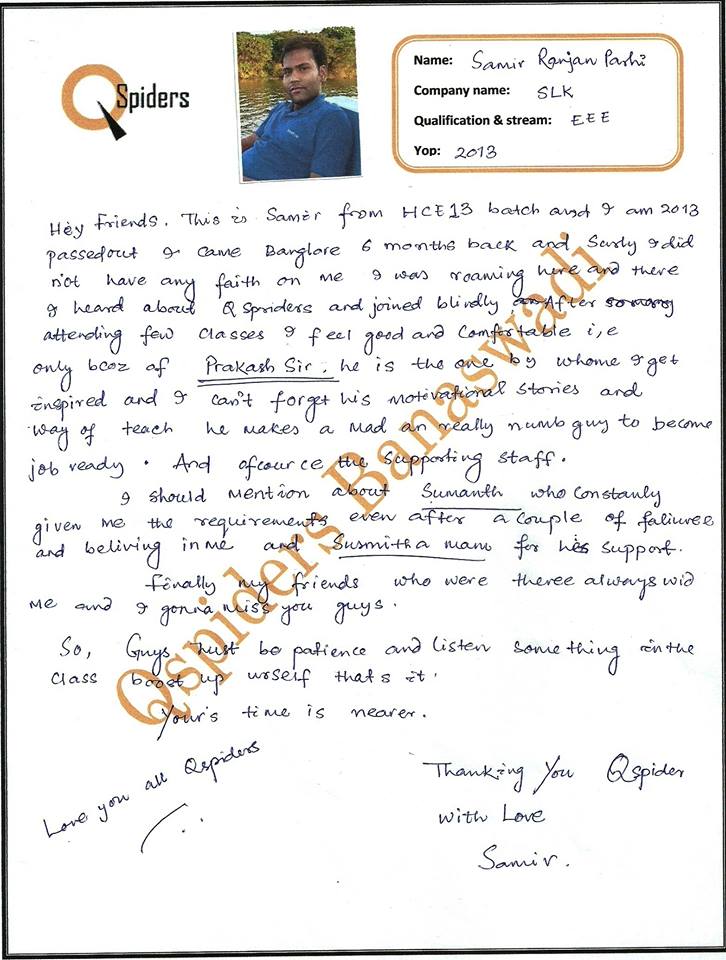 QSpiders
Name: Samir Ranjan Parhi
Company name: SLK
Qualification & stream: EEE
Yop: 2013
Hey Friends. This is Samir from HCE13 batch and I am 2013
passedout I came Banglore 6 months back and Surly I did
not have any faith on me I was roaming here and there
I heard about QSpriders and joined blindly, After
attending few classes I feel good and Comfortable i,e
only bcoz of Prakash Sir. he is the one by whome I get
inspired and I can't forget his motivational stories and
way of teach he makes a mad an really numb guy to become
job ready. And ofcource the Supporting staff.
I should mention about Sumanth who constanly
given me the requirements even after a couple of faliuree
and beliving in me and Susmitha mam for his support.
Finally my friends who were theree always wid
me and I gonna miss you guys.
So, Guys Just be patience and listen something in the
class boost up urself that's it.
Your's time is nearer.
Love you all Qspiders
Thanking You Qspider
with Love
Samir.
Qspiders Banaswadi